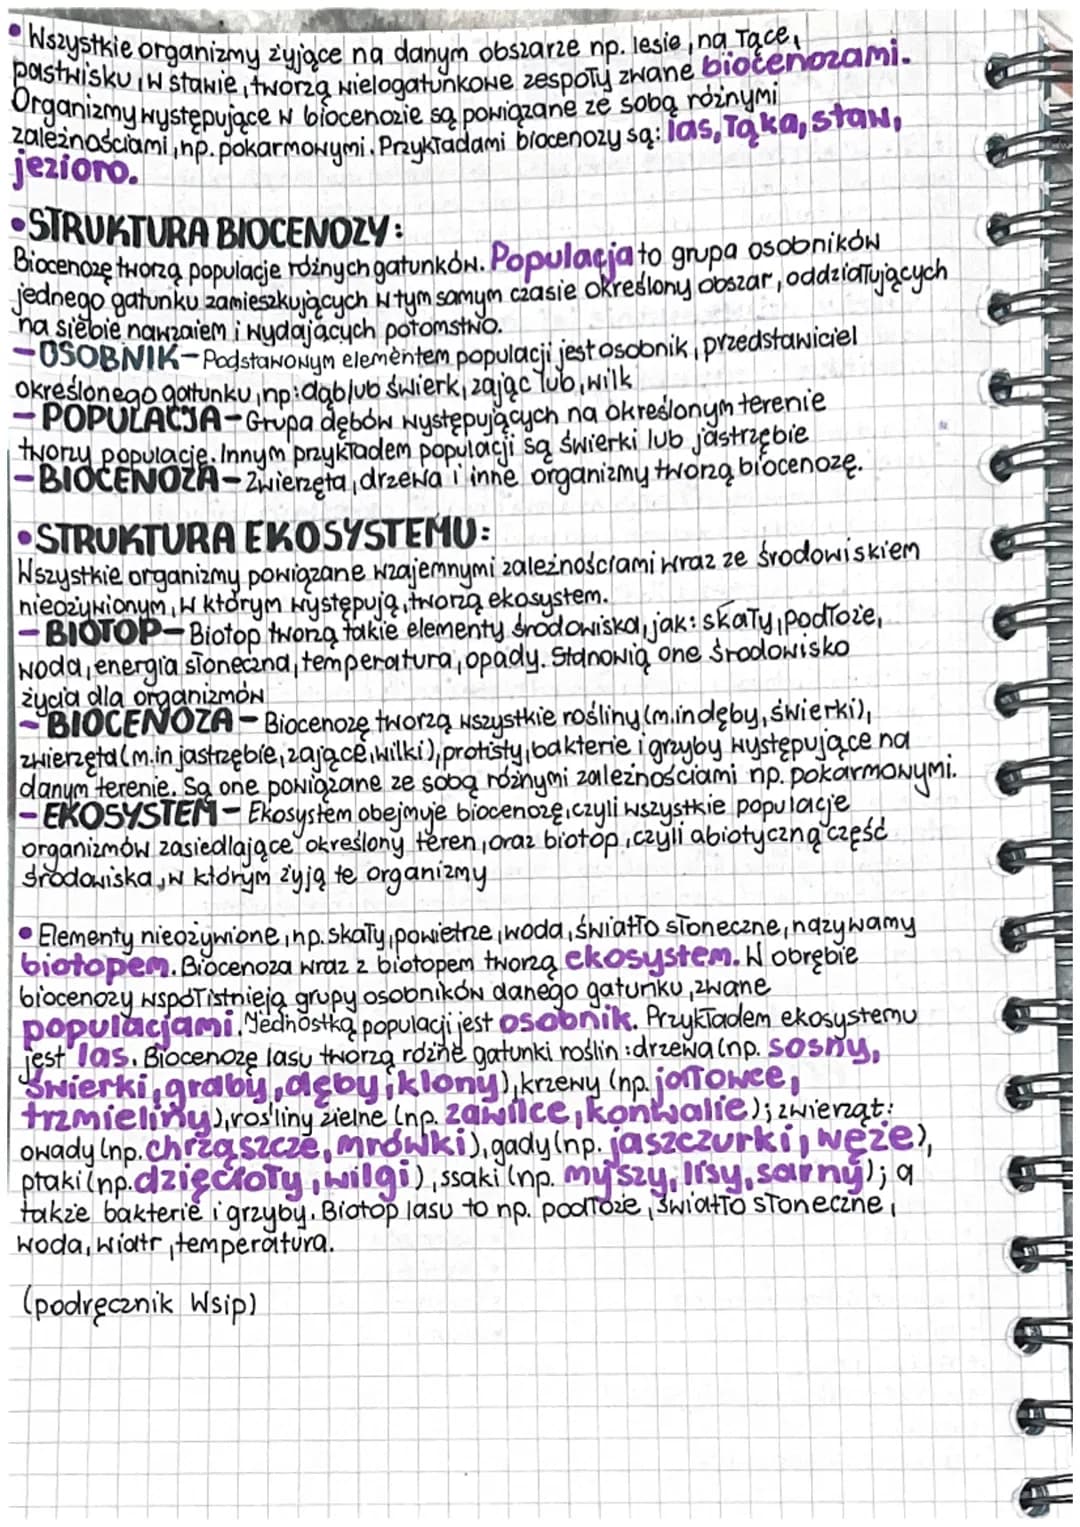 • Wszystkie organizmy żyjące na danym obszarze np. lesie, na łące,
pastwisku, w stawie, tworzą wielogatunkowe zespoły zwane biocenozami.
Organizmy występujące w biocenozie są powiązane ze sobą różnymi
zależnościami, np. pokarmowymi. Przykładami biocenozy są: las, łąka, staw,
jezioro.
• STRUKTURA BIOCENOZY:
Biocenozę tworzą populacje różnych gatunków. Populacja to grupa osobników
jednego gatunku zamieszkujących w tym samym czasie określony obszar, oddziałujących
na siebie nawzaiem i wydających potomstwo.
- OSOBNIK - Podstawowym elementem populacji jest osobnik, przedstawiciel
określonego gatunku, np: dąb lub świerk, zając lub, wilk
- POPULACJA - Grupa dębów występujących na określonym terenie
tworzy populację. Innym przykładem populacji są świerki lub jastrzębie
- BIOCENOZA - Zwierzęta, drzewa i inne organizmy tworzą biocenozę.
• STRUKTURA EKOSYSTEMU:
Wszystkie organizmy powiązane wzajemnymi zależnościami wraz ze środowiskiem
nieożywionym, w którym występują, tworzą ekosystem.
- BIOTOP - Biotop tworzą takie elementy środowiska, jak: skały, podłoże,
woda, energia słoneczna, temperatura, opady. Stanowią one środowisko
życia dla organizmów
- BIOCENOZA - Biocenozę tworzą wszystkie rośliny (m.in dęby, świerki),
zwierzęta (m.in jastrzębie, zające, wilki), protisty, bakterie i grzyby występujące na
danym terenie. Są one powiązane ze sobą różnymi zależnościami np. pokarmowymi.
- EKOSYSTEM - Ekosystem obejmuje biocenozę, czyli wszystkie populacje
organizmów zasiedlające określony teren, oraz biotop, czyli abiotyczną część
środowiska, w którym żyją te organizmy
• Elementy nieożywione, np. skały, powietrze, woda, światło słoneczne, nazywamy
biotopem. Biocenoza wraz z biotopem tworzą ekosystem. W obrębie
biocenozy współistnieją grupy osobników danego gatunku, zwane
populacjami. Jednostką populacji jest osobnik. Przykładem ekosystemu
jest las. Biocenozę lasu tworzą różne gatunki roślin: drzewa (np. sosny,
świerki, graby, dęby, klony), krzewy (np. jałowce,
trzmieliny), rośliny zielne (np. zawilce, konwalie); zwierząt:
owady (np. chrząszcze, mrówki), gady (np. jaszczurki, węże),
ptaki (np. dzięcioły, wilgi), ssaki (np. myszy, lisy, sarny); a
także bakterie i grzyby. Biotop lasu to np. podłoże, światło słoneczne,
woda, wiatr, temperatura.
(podręcznik Wsip)